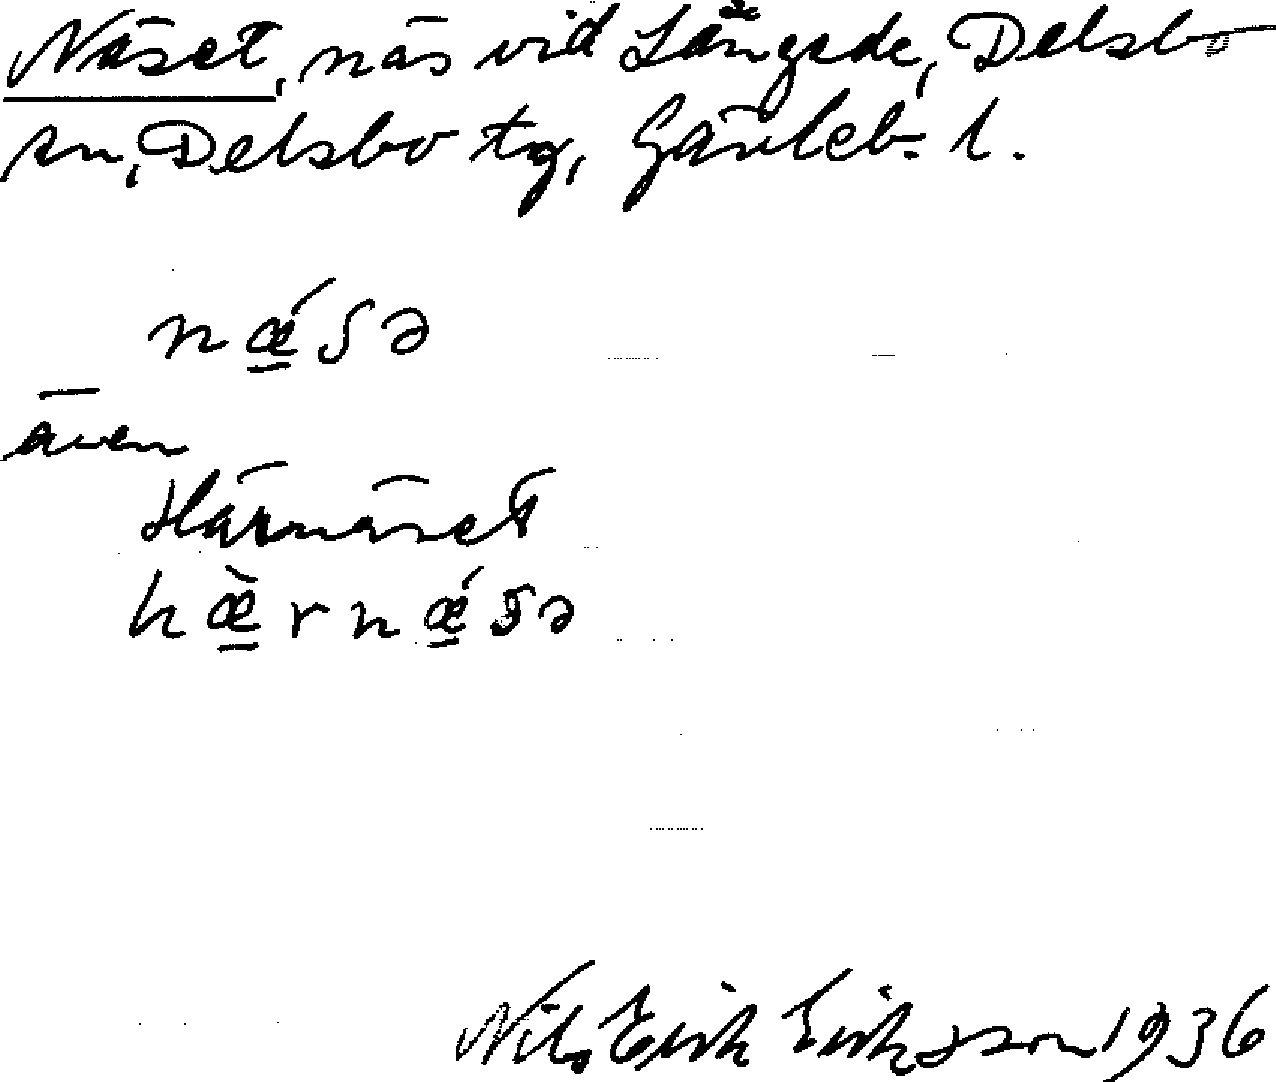 Näset, näs vid Långede, Delsbo
sn, Delsbo tg, Gävleb. l.
nǽ̲sə
även
Härnäset
hæ̲̀rnǽ̲sə
Nils Erik Eriksson 1936